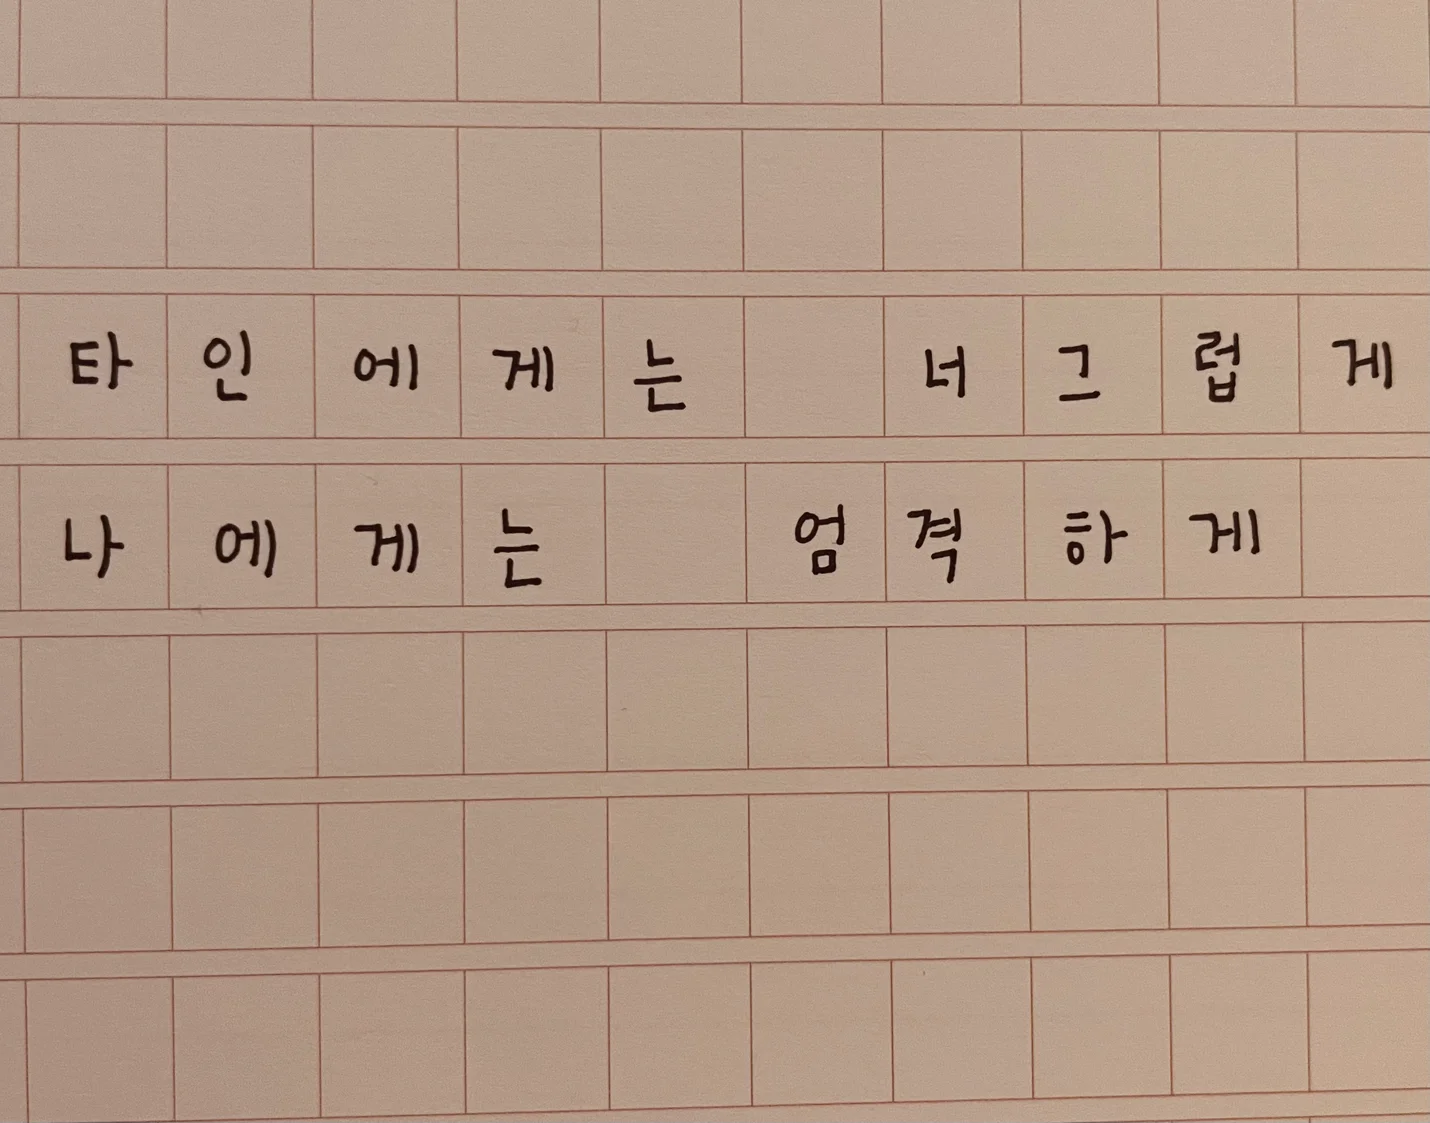 타인에게는 너그럽게
나에게는 엄격하게